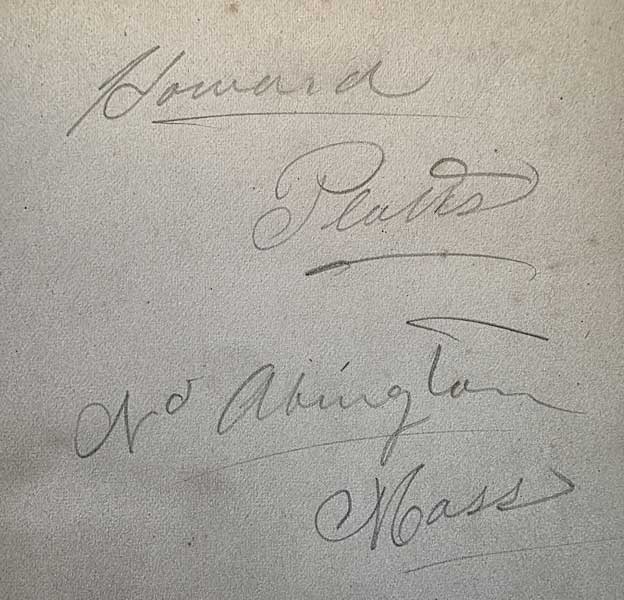 Howard
Platts
No Abington
Mass